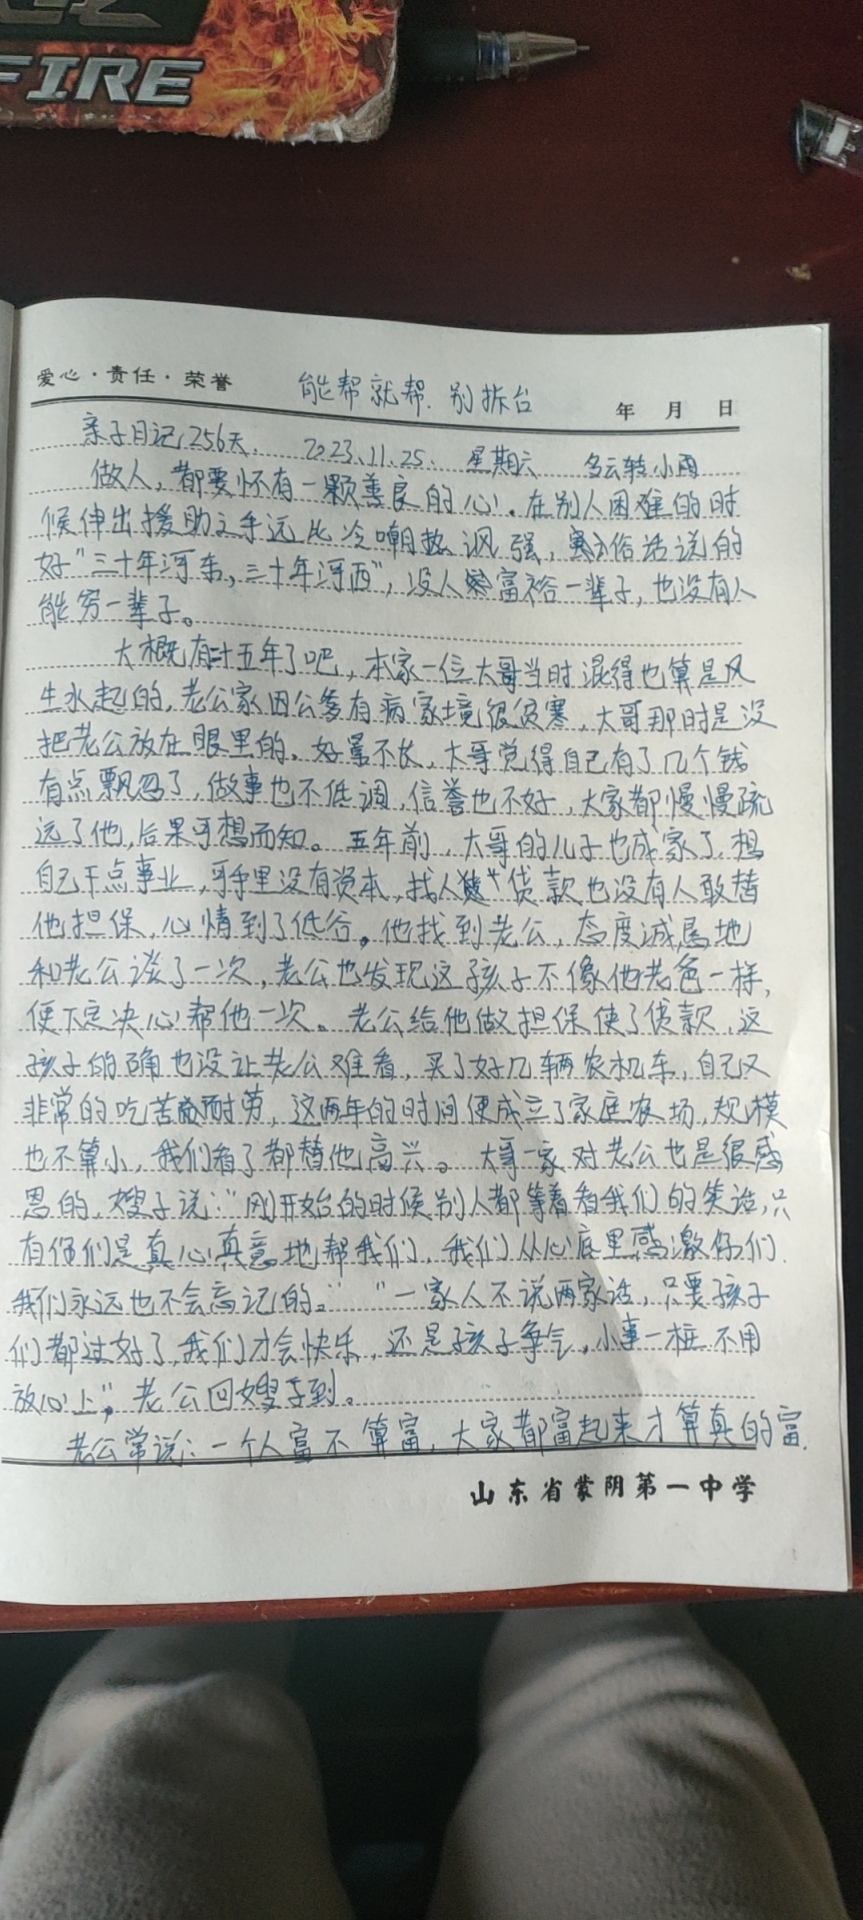 FIRE
爱心·责任·荣誉
能帮就帮.别拆台
年 月 日
亲子日记,256天. 2023.11.25. 星期六 多云转小雨
做人,都要怀有一颗善良的心.在别人困难的时
候伸出援助之手远比冷嘲热讽强,俗话说的
好"三十年河东,三十年河西",没人富裕一辈子,也没有人
能穷一辈子。
大概有二十五年了吧,本家一位大哥当时混得也算是风
生水起的,老公家因公爹有病家境很贫寒,大哥那时是没
把老公放在眼里的,好景不长,大哥觉得自己有了几个钱
有点飘忽了,做事也不低调,信誉也不好,大家都慢慢疏
远了他,后果可想而知。五年前,大哥的儿子也成家了,想
自己干点事业,手里没有资本,找人贷款也没有人敢替
他担保,心情到了低谷。他找到老公,态度诚恳地
和老公谈了一次,老公也发现这孩子不像他老爸一样,
便下定决心帮他一次。老公给他做担保使了贷款,这
孩子的确也没让老公难看,买了好几辆农机车,自己又
非常的吃苦耐劳,这两年的时间便成立了家庭农场,规模
也不算小,我们看了都替他高兴。大哥一家对老公也是很感
恩的,嫂子说:"刚开始的时候别人都等着看我们的笑话,只
有你们是真心真意地帮我们,我们从心底里感激你们.
我们永远也不会忘记的。""一家人不说两家话,只要孩子
们都过好了,我们才会快乐,还是孩子争气,小事一桩不用
放心上",老公回嫂子到。
老公常说:一个人富不算富,大家都富起来才算真的富.
山东省蒙阴第一中学